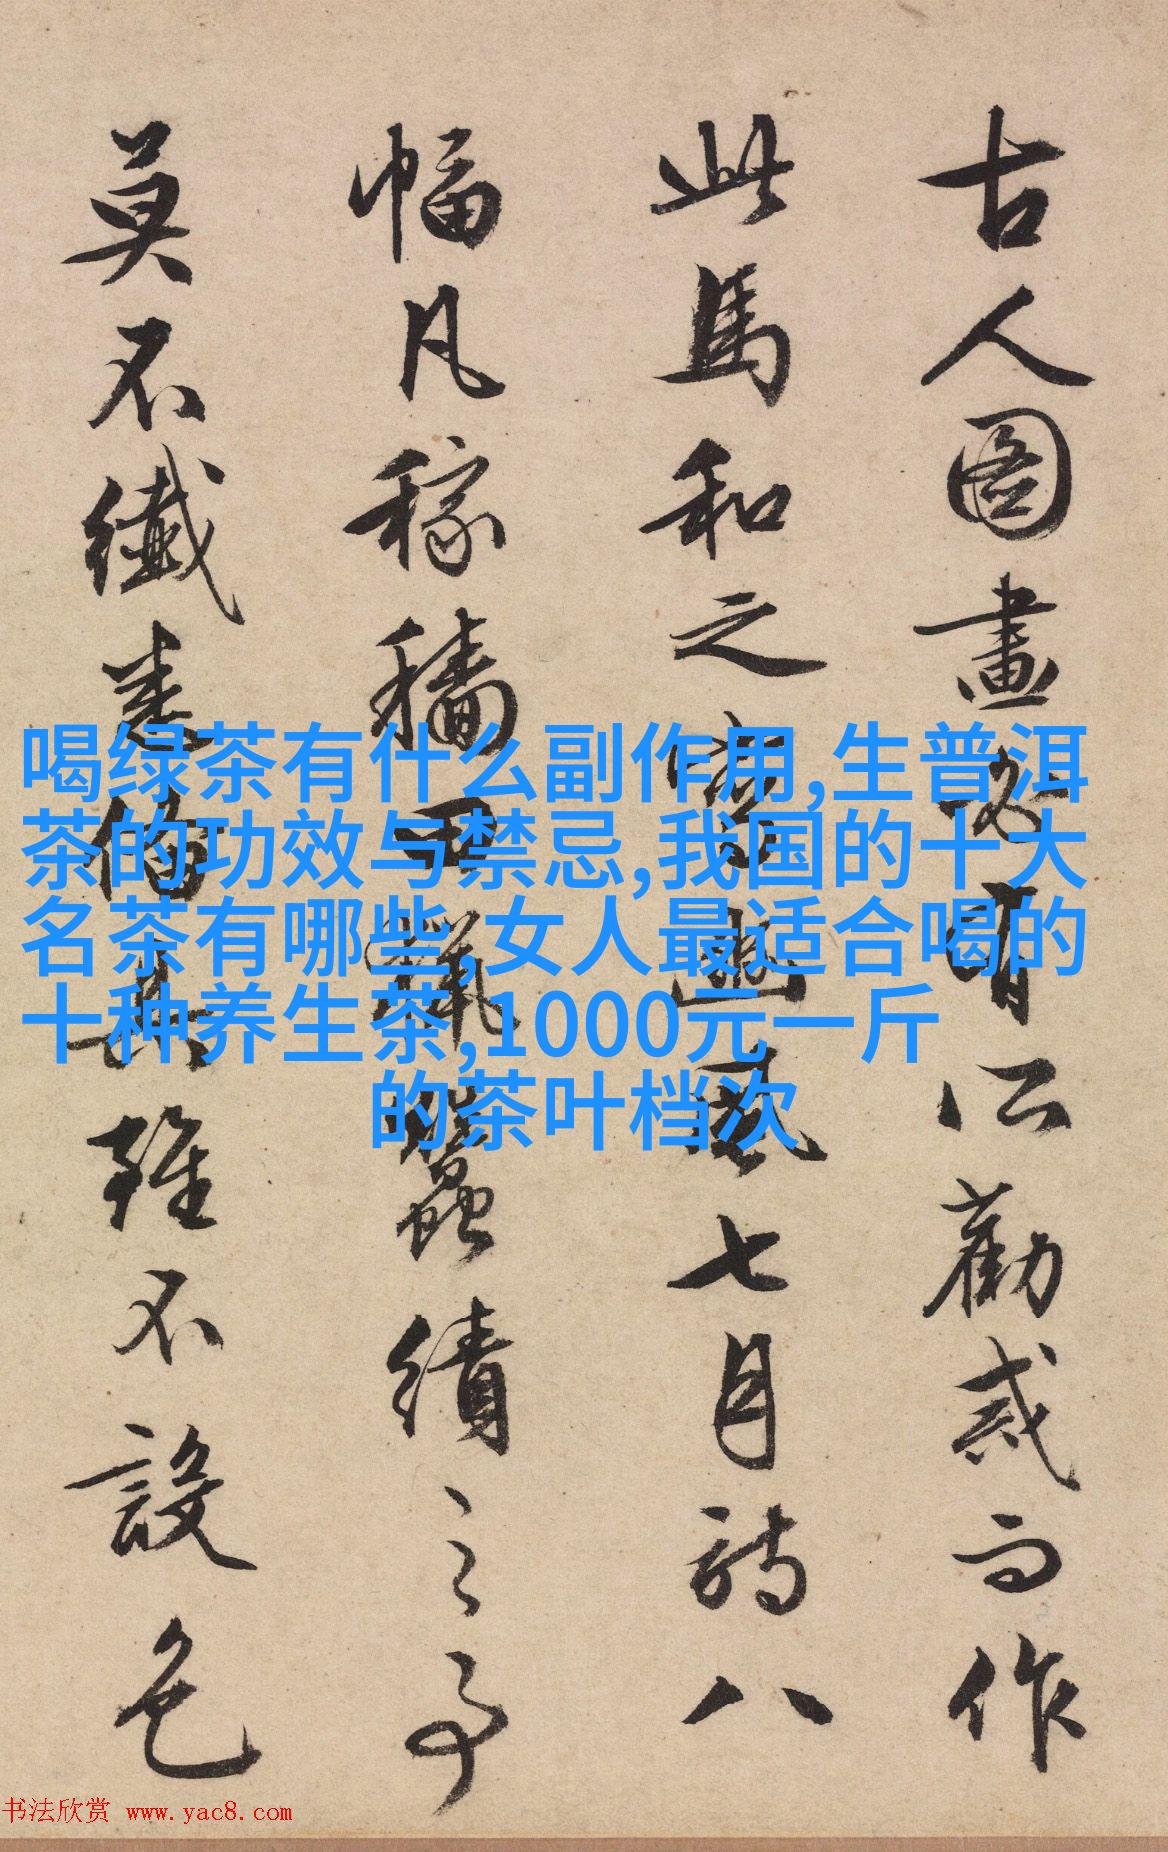 古人圖畫必有所勸戒而作
此馬和之寫豳風七月詩八
幅凡稼穡田獵蠶績之事
莫不纖悉備具雖不設色
喝绿茶有什么副作用,生普洱
茶的功效与禁忌,我国的十大
名茶有哪些,女人最适合喝的
十种养生茶,1000元一斤
的茶叶档次
书法欣赏 www.yac8.com